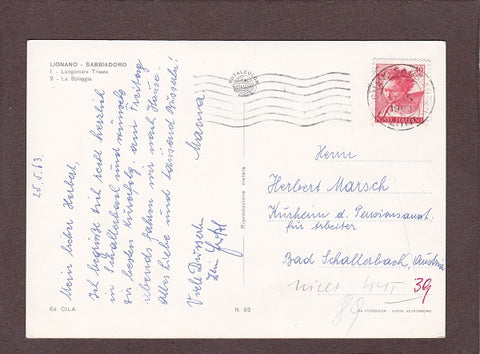 LIGNANO - SABBIADORO
1 - Lungomare Trieste
2 - La Spiaggia
Mein lieber Herbert,
Ich begrüße dich recht herzlich
in Schallerbach und wünsche
dir besten Kurerfolg. am Freitag
abends fahren wir nach Hause.
alles Liebe und tausend Bussali!
Mama
Viele Busserln
Dein
Riproduzione vietata
METALCOLOR
POSTE ITALIANE
Herrn
Herbert Marsch
Kurheim d. Pensionsanst.
für Arbeiter
Bad Schallerbach, Austria
39
Ed. CILA
N. 83